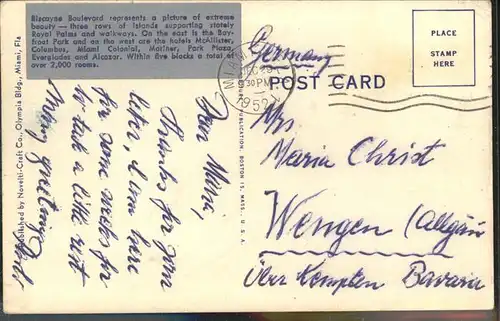 Biscayne Boulevard represents a picture of extreme
beauty — three rows of islands supporting stately
Royal Palms and walkways. On the east is the Bay-
front Park and on the west are the hotels McAllister,
Columbus, Miami Colonial, Mariner, Park Plaza,
Everglades and Alcazar. Within five blocks a total of
over 2,000 rooms.
Published by Novelti-Craft Co., Olympia Bldg., Miami, Fla
Dear Maria,
Thanks for your
lines, I am here
for some weeks for
to take a little rest
Many greetings
PUBLICATION, BOSTON 15, MASS., U. S. A.
Germany
MIAMI
30 PM
1952
POST CARD
PLACE
STAMP
HERE
Mrs
Maria Christ
Wengen (Allgäu
über Kempten Bavaria